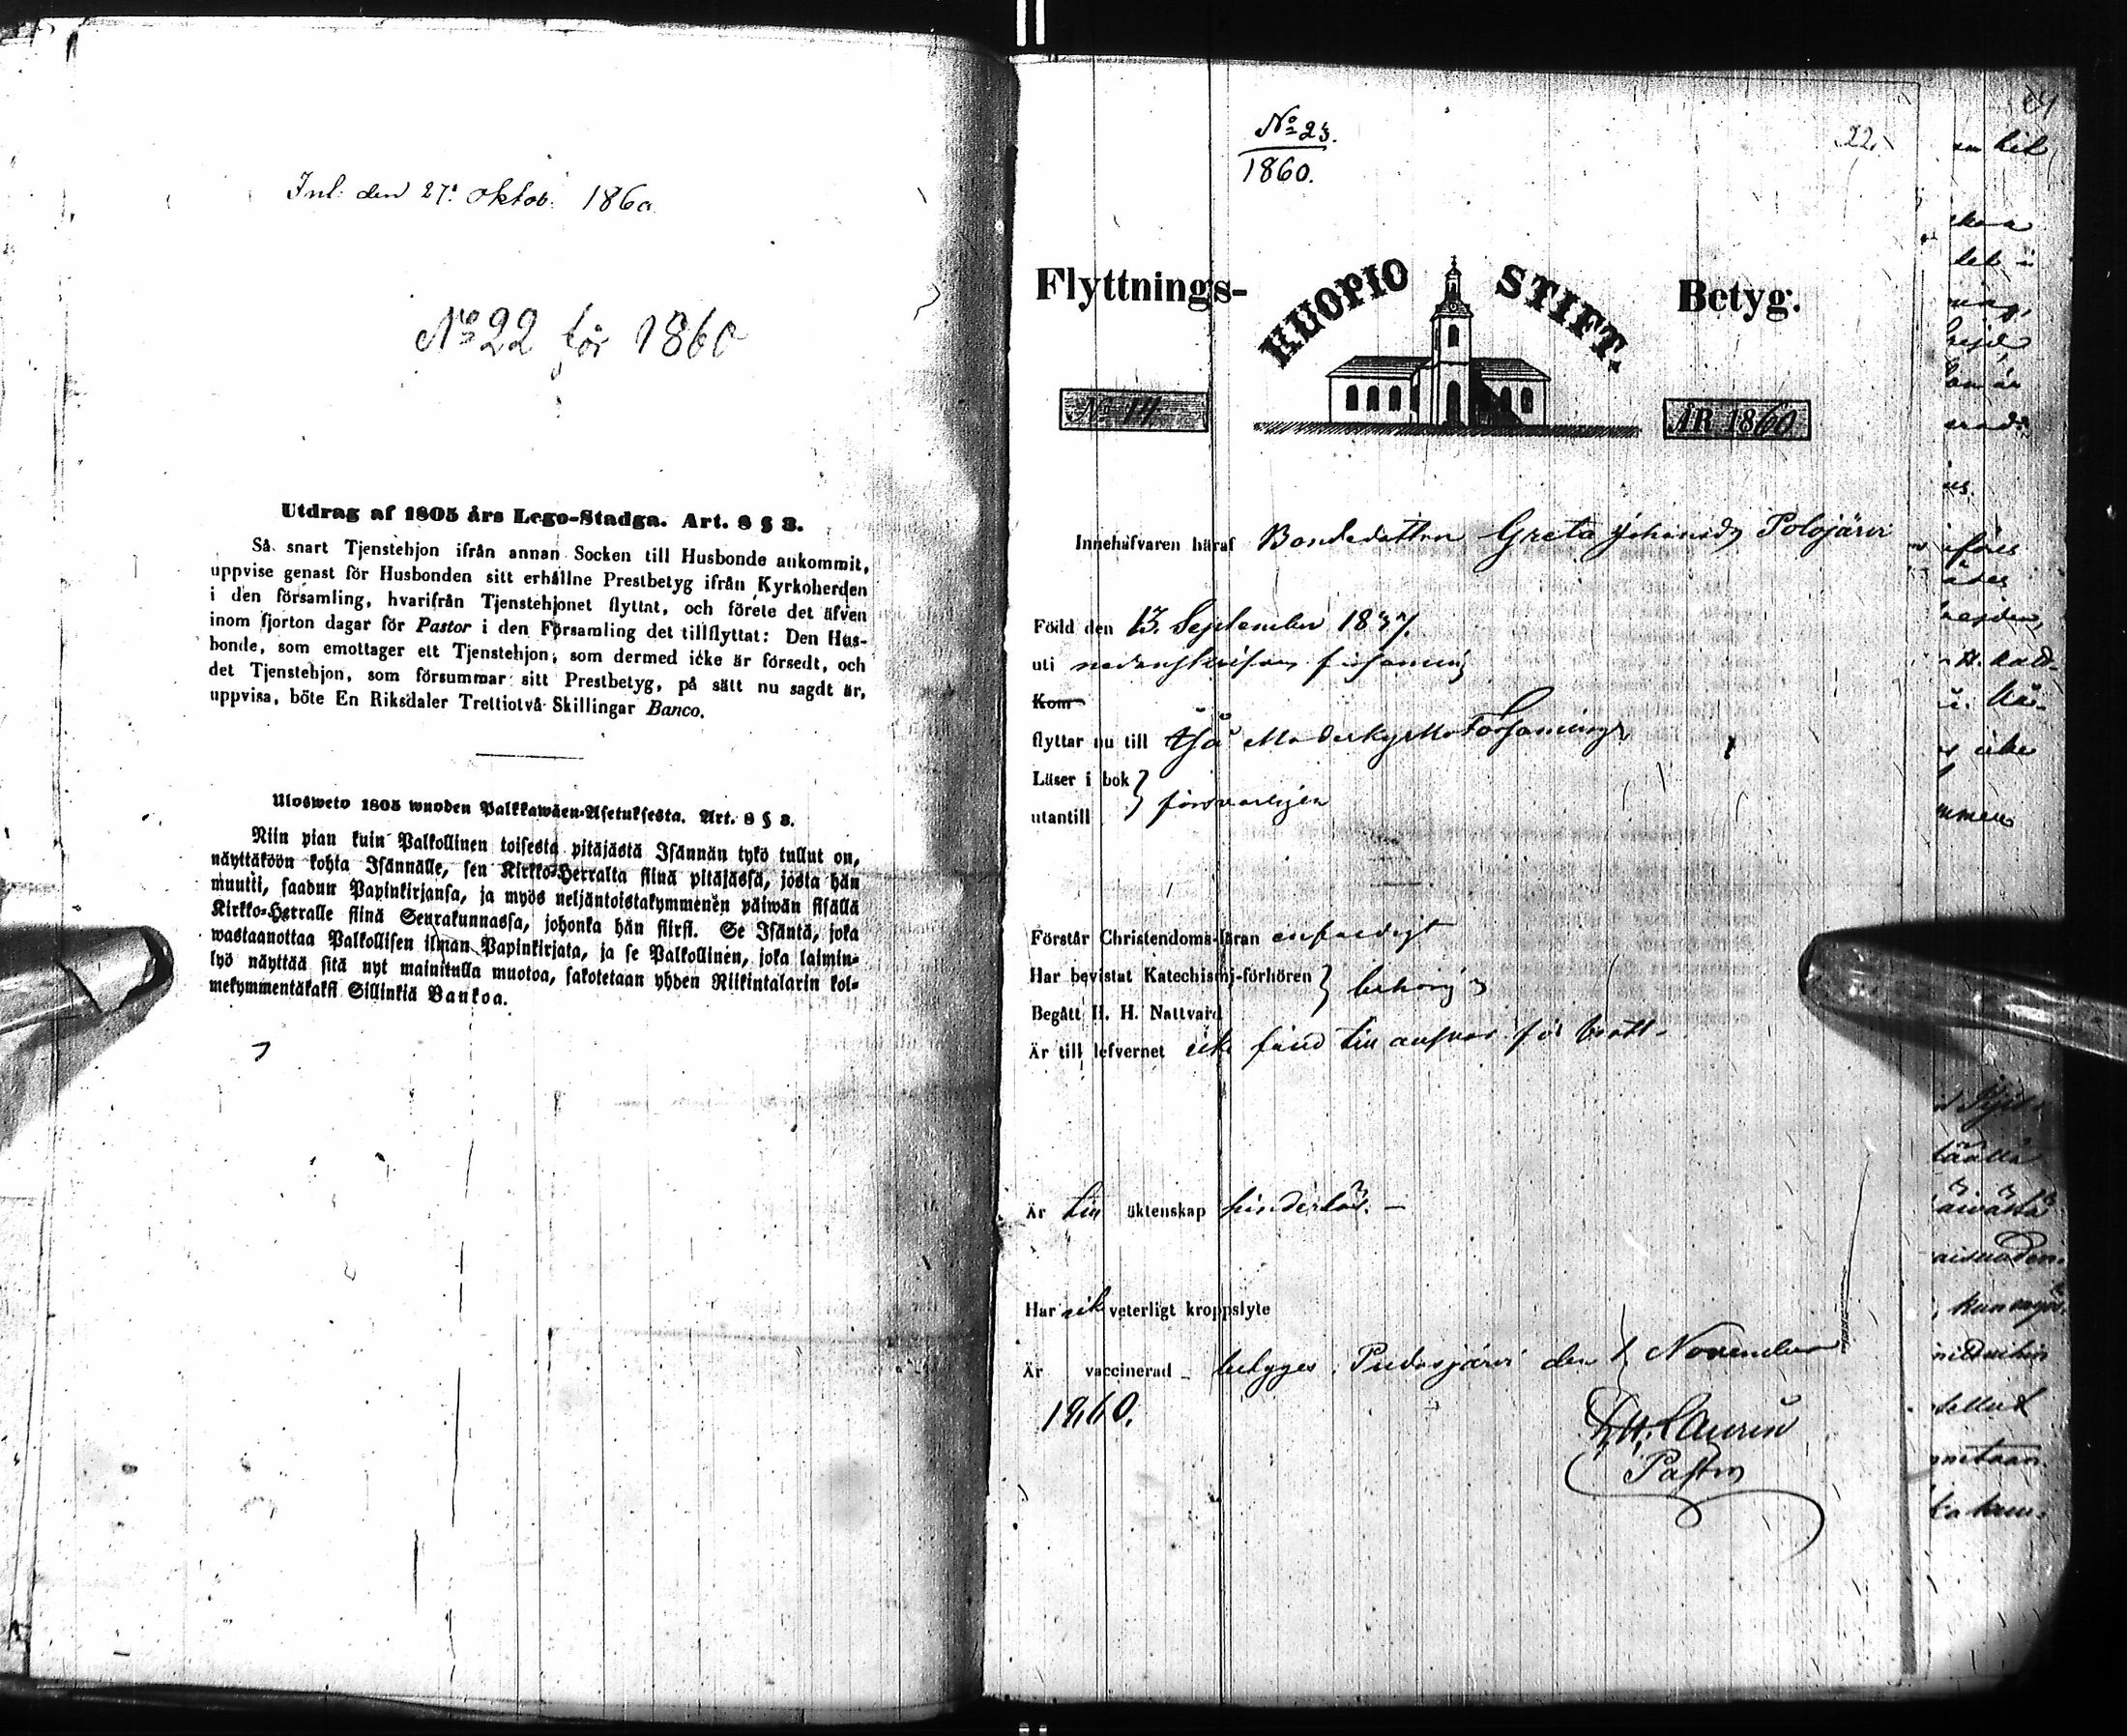 Inl. den 27. Oktob. 1860
No 22 för 1860
Utdrag af 1805 års Lego-Stadga. Art. 8 § 3.
Så snart Tjenstehjon ifrån annan Socken till Husbonde ankommit,
uppvise genast för Husbonden sitt erhållne Prestbetyg ifrån Kyrkoherden
i den församling, hvarifrån Tjenstehjonet flyttat, och förete det äfven
inom fjorton dagar för Pastor i den Församling det tillflyttat: Den Hus-
bonde, som emottager ett Tjenstehjon, som dermed icke är försedt, och
det Tjenstehjon, som försummar sitt Prestbetyg, på sätt nu sagdt är,
uppvisa, böte En Riksdaler Trettiotvå Skillingar Banco.
Ulosweto 1805 wuoden Palkkawäen-Asetuksesta. Art. 8 § 3.
Niin pian kuin Palkollinen toisesta pitäjästä Isännän tykö tullut on,
näyttäköön kohta Isännälle, sen Kirkko-Herralta siinä pitäjässä, josta hän
muutti, saadun Papinkirjansa, ja myös neljäntoistakymmenen päiwän sisällä
Kirkko-Herralle siinä Seurakunnassa, johonka hän siirsi. Se Isäntä, joka
wastaanottaa Palkollisen ilman Papinkirjata, ja se Palkollinen, joka laimin-
lyö näyttää sitä nyt mainitulla muotoa, sakotetaan yhden Riikintalarin kol-
mekymmentäkaksi Sillinkiä Bankoa.
No 23.
1860.
22.
Flyttnings- KUOPIO STIFT. Betyg.
No 17 ÅR 1860
Innehafvaren häraf Bondedottren Greta Johansdr Polojärvi
Född den 13. September 1837.
uti nedanskrifven församling
Kom
flyttar nu till Moderkyrko Församling
Läser i bok } försvarligen
utantill
Förstår Christendoms-läran enfaldigt
Har bevistat Katechismj-förhören } behörig
Begått H. H. Nattvard
Är till lefvernet icke känd till ansvar för brott
Är till äktenskap hinderlös.
Har ick veterligt kroppslyte
Är vaccinerad betygges Pudasjärvi den 1 November
1860.
Pastor